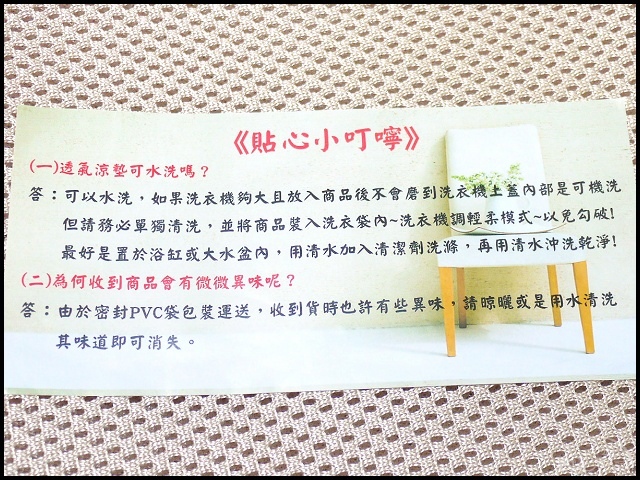 《貼心小叮嚀》
(一)透氣涼墊可水洗嗎？
答：可以水洗，如果洗衣機夠大且放入商品後不會磨到洗衣機上蓋內部是可機洗
但請務必單獨清洗，並將商品裝入洗衣袋內~洗衣機調輕柔模式~以免勾破!
最好是置於浴缸或大水盆內，用清水加入清潔劑洗滌，再用清水沖洗乾淨!
(二)為何收到商品會有微微異味呢？
答：由於密封PVC袋包裝運送，收到貨時也許有些異味，請晾曬或是用水清洗
其味道即可消失。